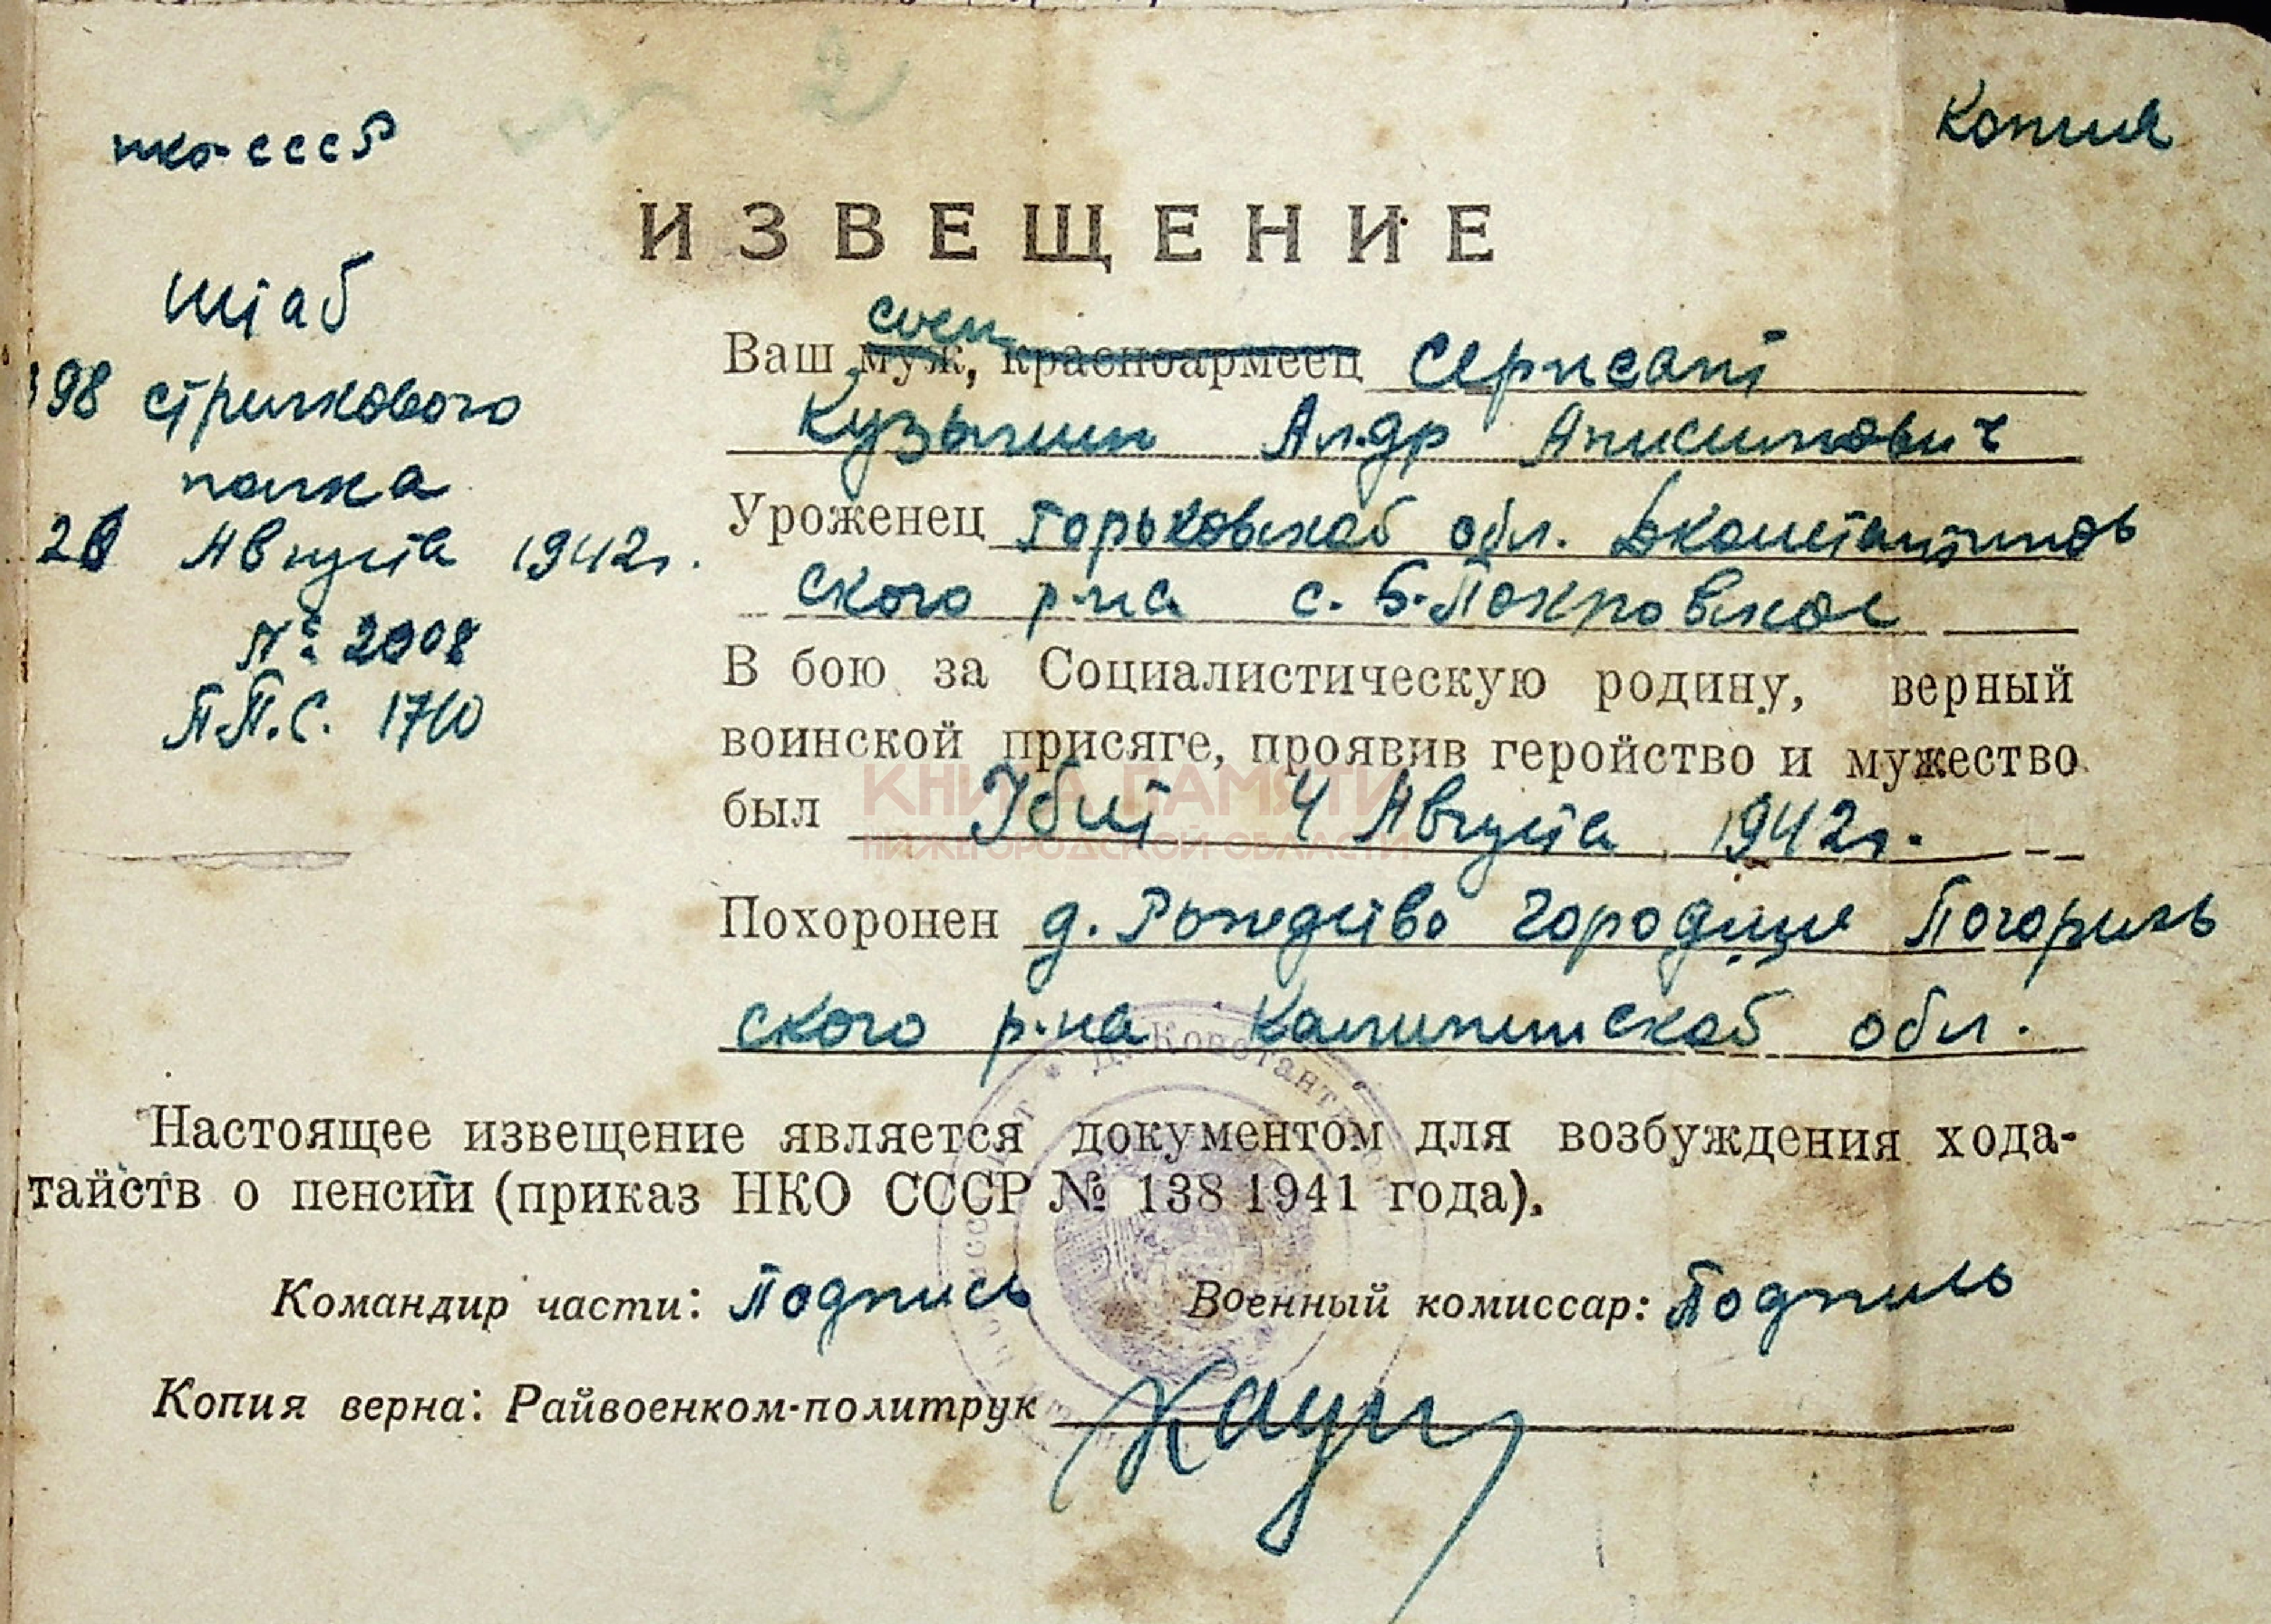 нко-СССР
Копия
ИЗВЕЩЕНИЕ
Штаб
398 стрелкового
полка
20 Августа 1942г.
№ 2008
П.П.С. 1710
сын
Ваш муж, красноармеец Сержант
Кузьмин Ал-др Анисимович
Уроженец Горьковской обл. Д.Константинов
ского р-на с. Б.-Покровское
В бою за Социалистическую родину, верный
воинской присяге, проявив геройство и мужество
был Убит 4 Августа 1942г.
Похоронен д. Рождество Городище Погорель
ского р-на Калининской обл.
Настоящее извещение является документом для возбуждения хода-
тайств о пенсии (приказ НКО СССР № 138 1941 года).
Командир части: Подпись Военный комиссар: Подпись
Копия верна: Райвоенком-политрук
КНИГА ПАМЯТИ
НИЖЕГОРОДСКОЙ ОБЛАСТИ